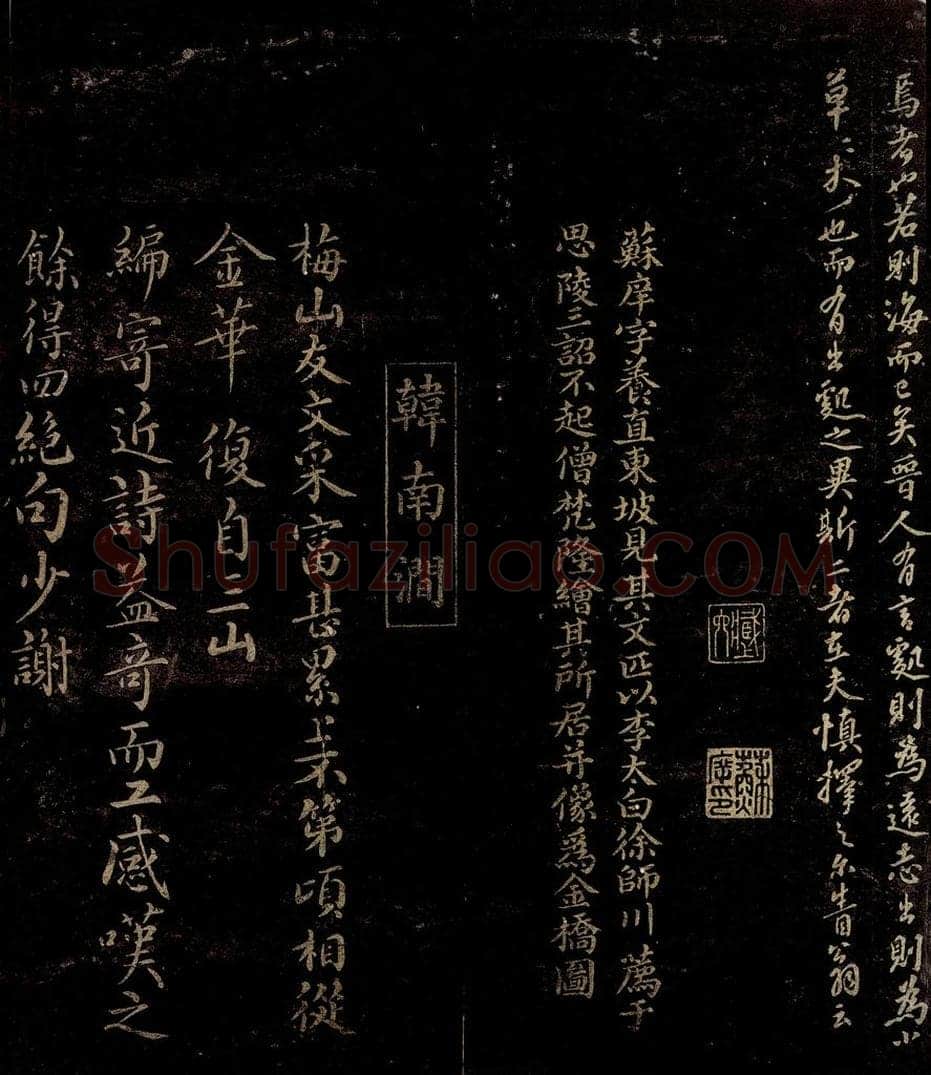 焉者也若則海而已矣晉人有言處則為遠志出則為小
草二木一也而有出處之異斯二者在夫慎擇之尔眚翁云
蘇庠字養直東坡見其文匹以李太白徐師川薦于
思陵三詔不起僧梵隆繪其所居并像爲金橋圖
韓南澗
梅山友文采富甚累第頃相從
金華 復自三山
編寄近詩益奇而工感嘆之
餘得四絕句少謝
Shufaziliao.COM